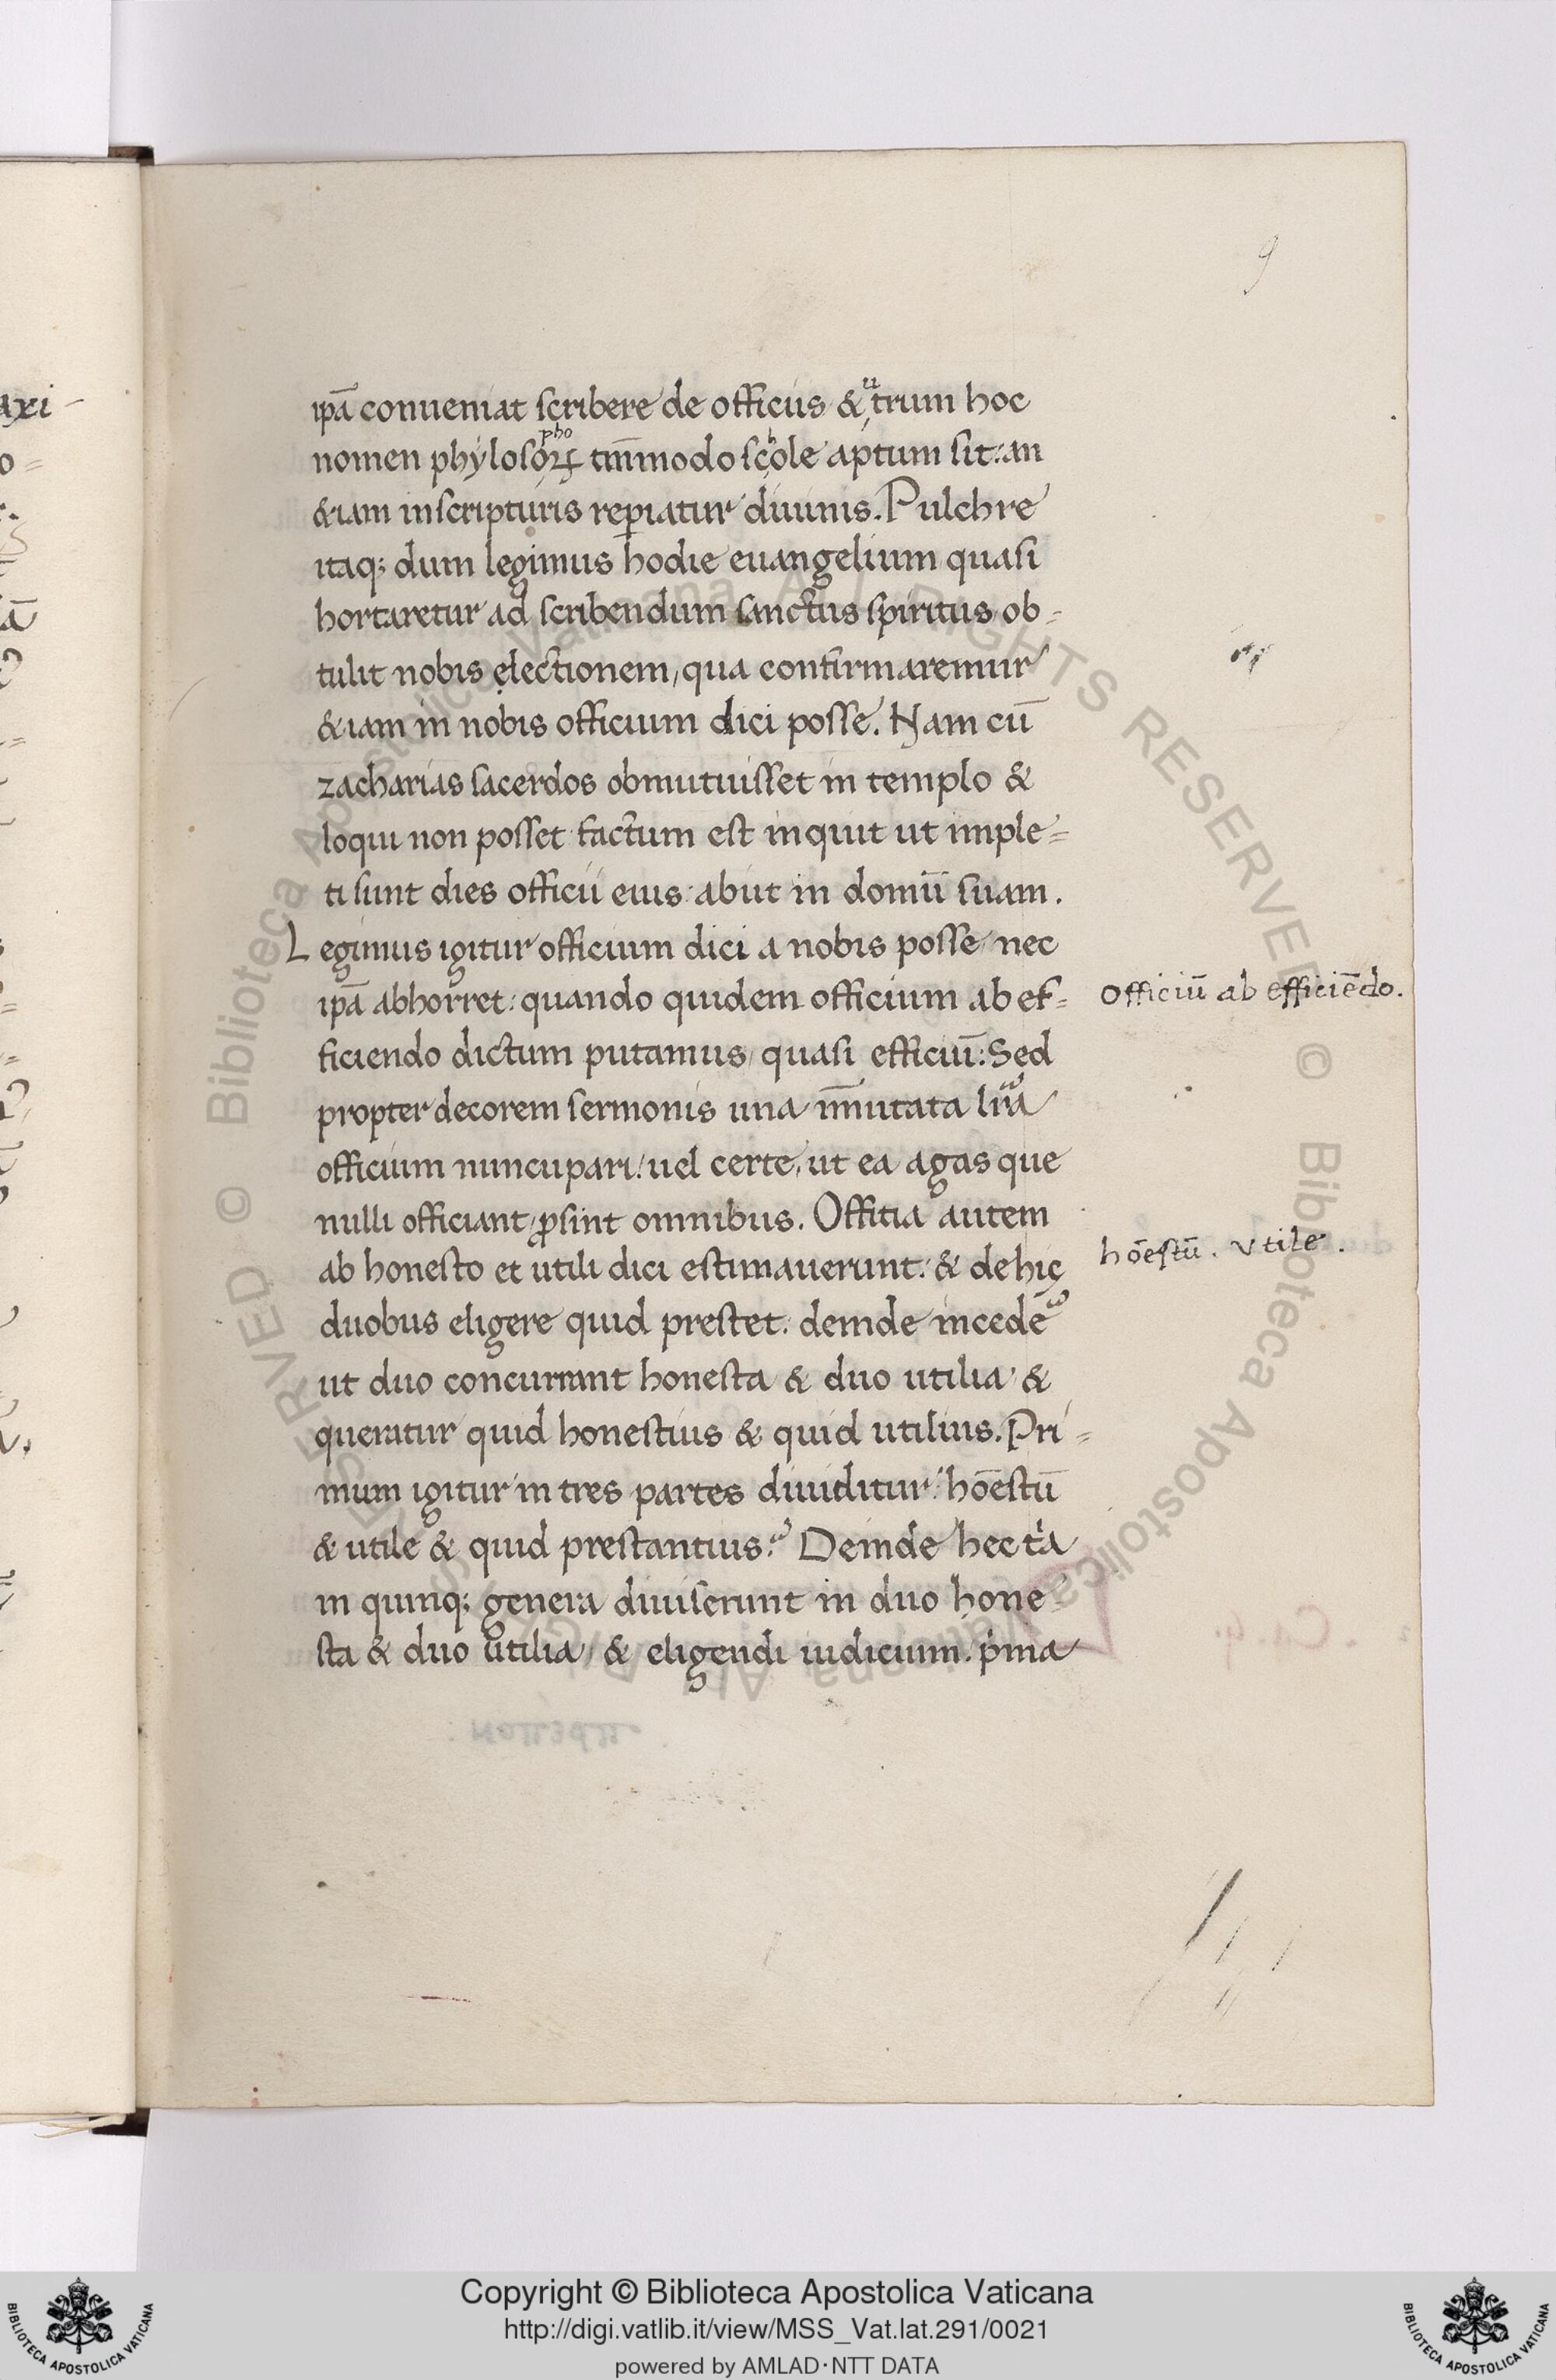 9
ip̄a conueniat scribere de officiis & utrum hoc
nomen phylosophoꝝ tm̄modo schole aptum sit: an
&iam in scripturis reꝑiatur diuinis. Pulchre
itaq; dum legimus hodie euangelium quasi
hortaretur ad scribendum sanctus spiritus ob-
tulit nobis electionem, qua confirmaremur
&iam in nobis officium dici posse. Nam cū
zacharias sacerdos obmutuisset in templo &
loqui non posset factum est inquit ut imple=
ti sunt dies officii eius: abiit in domū suam.
Legimus igitur officium dici a nobis posse nec
ip̄a abhorret: quando quidem officium ab ef=
ficiendo dictum putamus, quasi efficiū: Sed
propter decorem sermonis una īmutata lr̄a
officium nuncupari: uel certe, ut ea agas que
nulli officiant, ꝓsint omnibus. Offitia autem
ab honesto et utili dici estimauerunt: & de hic
duobus eligere quid prestet: deinde incedē
ut duo concurrant honesta & duo utilia & 
queratur quid honestius & quid utilius. Pri=
mum igitur in tres partes diuiditur: hōestū
& utile & quid prestantius. Deinde hec tria
in quinq; genera diuiserunt in duo hone
sta & duo utilia, & eligendi iudicium. pima
Officiū ab efficiēdo.
hōestū. vtile.
© Biblioteca Apostolica Vaticana ALL RIGHTS RESERVED
© Biblioteca Apostolica Vaticana ALL RIGHTS RESERVED
Copyright © Biblioteca Apostolica Vaticana
http://digi.vatlib.it/view/MSS_Vat.lat.291/0021
powered by AMLAD·NTT DATA
BIBLIOTECA APOSTOLICA VATICANA
BIBLIOTECA APOSTOLICA VATICANA